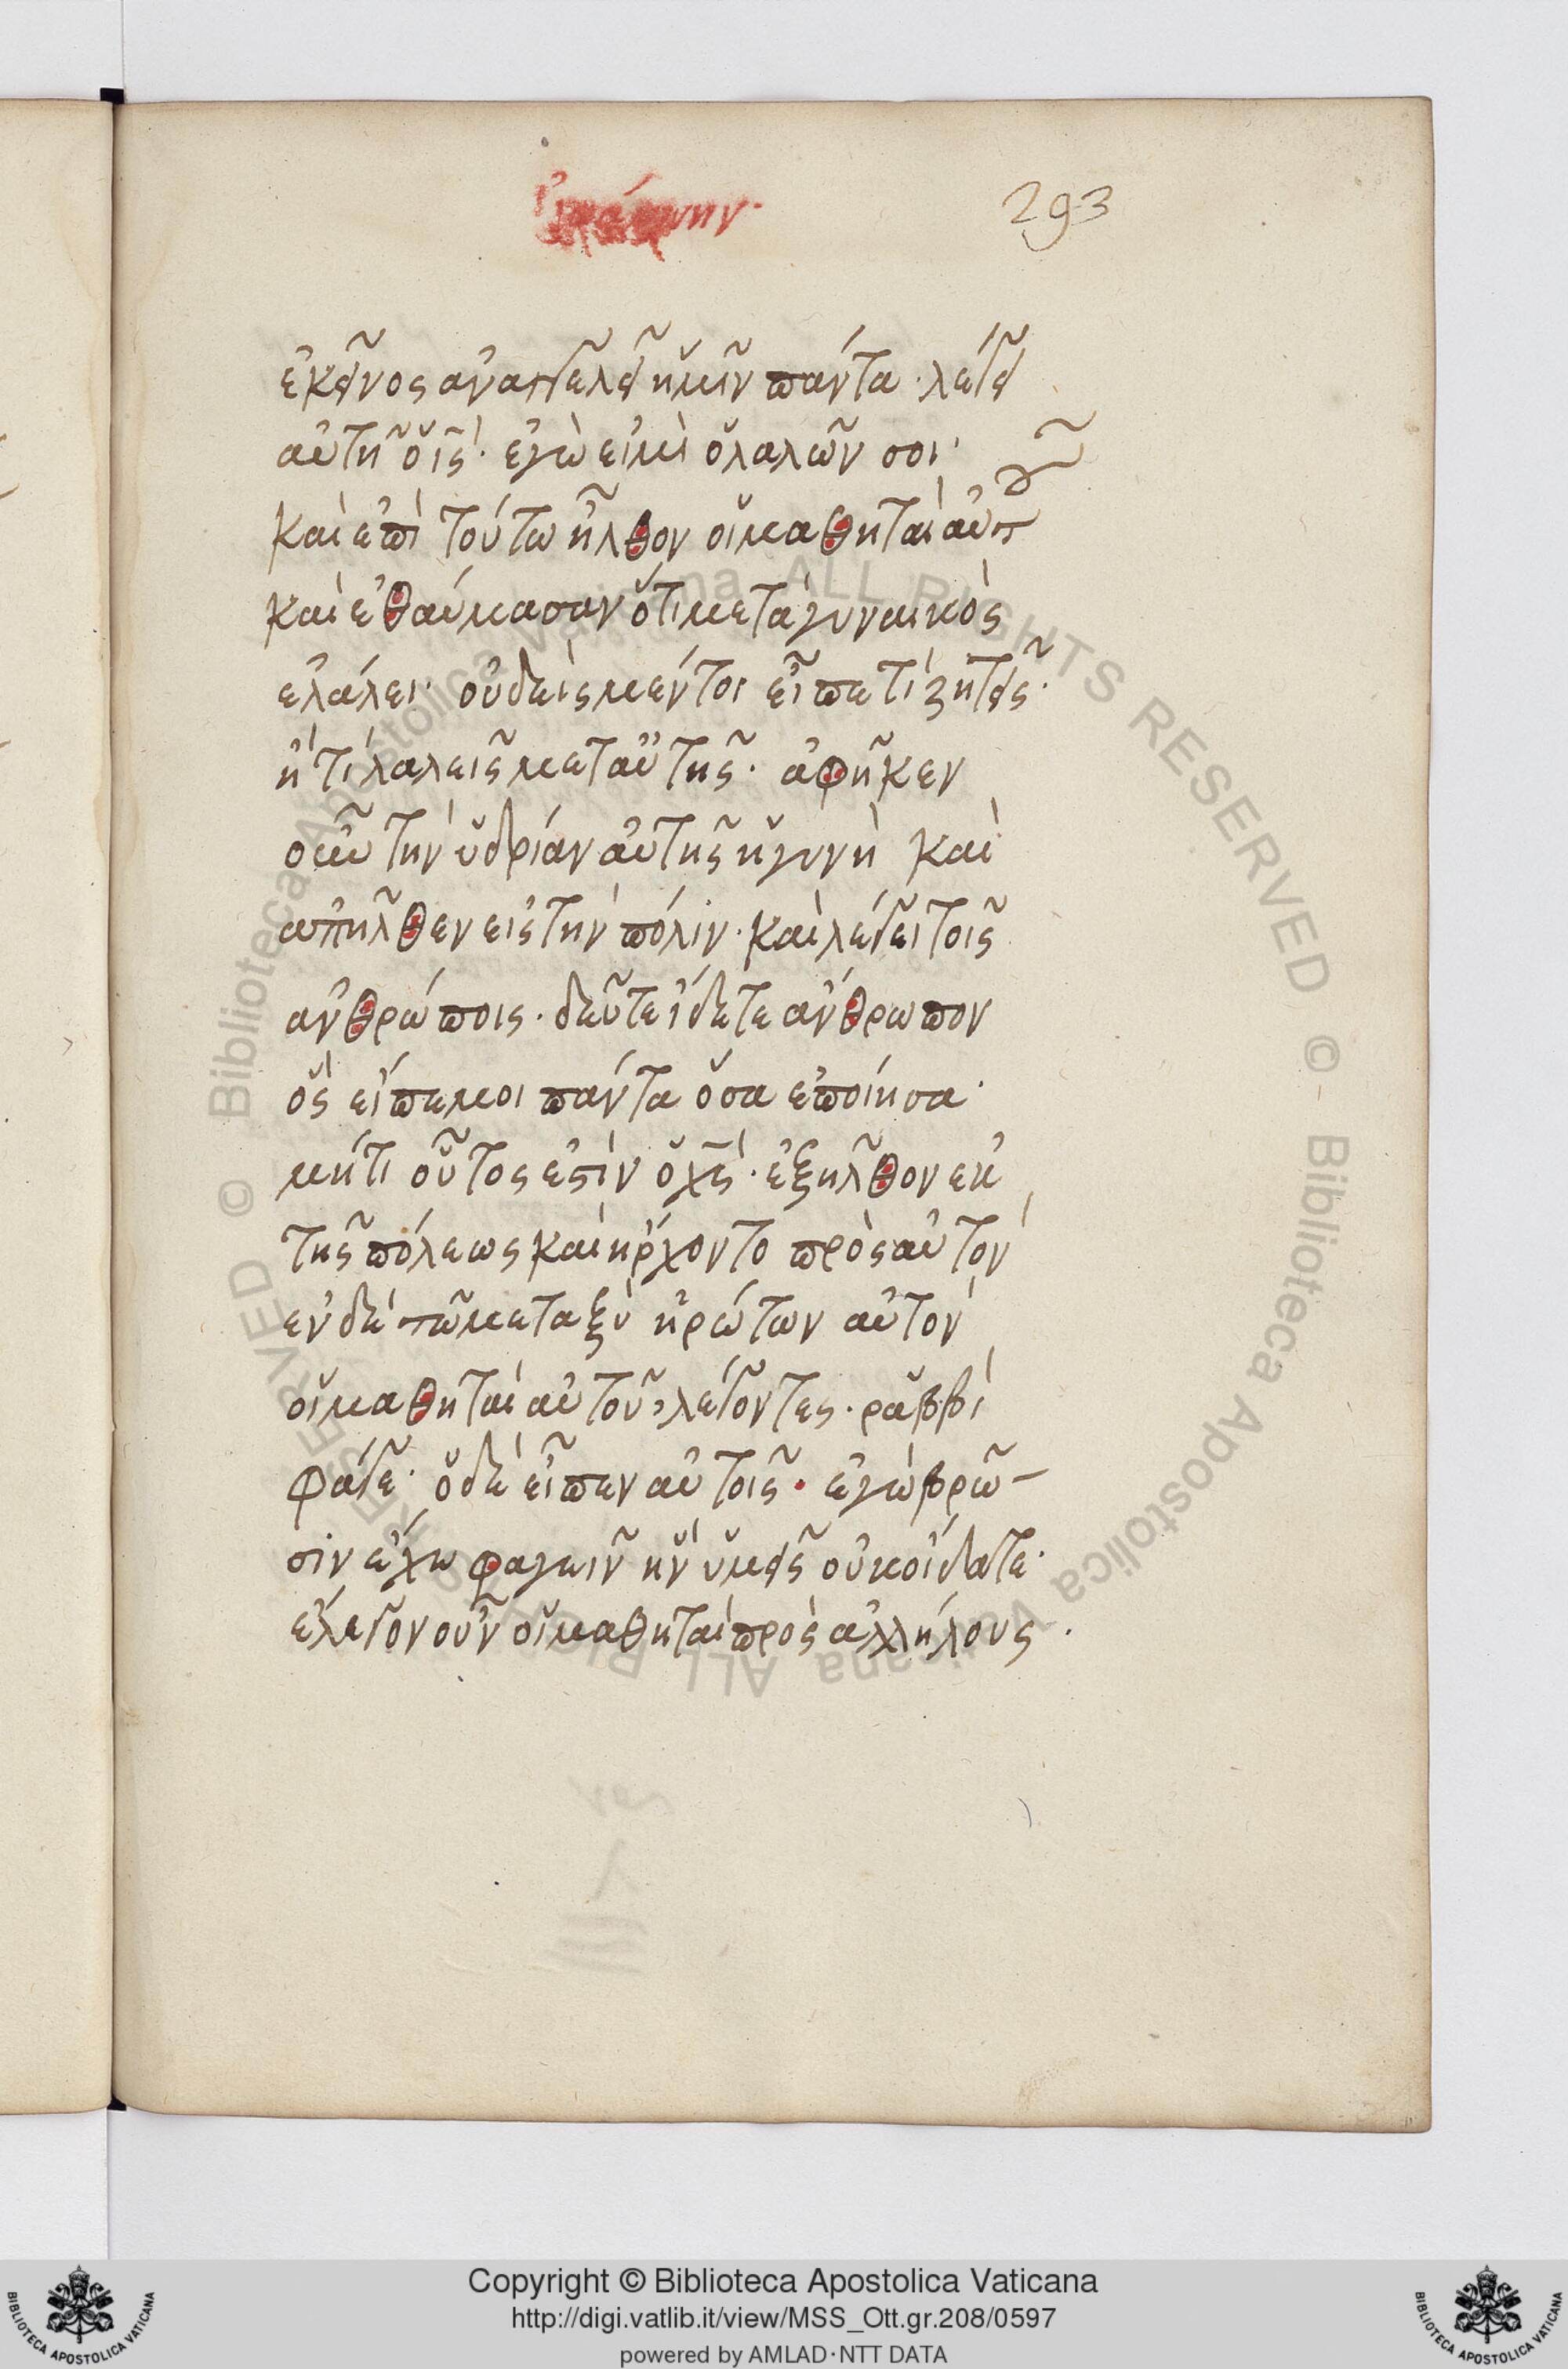 293
ἐκεῖνος ἀναγγελεῖ ἡμῖν πάντα· λέγει
αὐτῆ ὁ ις· ἐγὼ εἰμὶ ὁ λαλῶν σοι·
καὶ ἐπὶ τούτω ἦλθον οἱ μαθηταὶ αὐτ
καὶ ἐθαύμασαν ὅτι μετὰ γυναικὸς
ἐλάλει· οὐδεὶς μέντοι εἶπε τί ζητεῖς·
ἢ τί λαλεῖς μετ αὐτῆς· ἀφῆκεν
οὖν τὴν ὑδρίαν αὐτῆς ἡ γυνὴ καὶ
ἀπῆλθεν εἰς τὴν πόλιν· καὶ λέγει τοῖς
ἀνθρώποις· δεῦτε ἴδετε ἄνθρωπον
ὃς εἶπε μοι πάντα ὅσα ἐποίησα·
μήτι οὗτος ἐστὶν ὁ χς· ἐξῆλθον ἐκ
τῆς πόλεως καὶ ἤρχοντο πρὸς αὐτὸν
ἐν δὲ τῶ μεταξὺ ἠρώτων αὐτὸν
οἱ μαθηταὶ αὐτοῦ, λέγοντες· ῥαββὶ
φάγε· ὁ δὲ εἶπεν αὐτοῖς· ἐγὼ βρῶ-
σιν ἔχω φαγεῖν ἣν ὑμεῖς οὐκ οἴδατε·
ἔλεγον οὖν οἱ μαθηταὶ πρὸς ἀλλήλους·
© Biblioteca Apostolica Vaticana ALL RIGHTS RESERVED © Biblioteca Apostolica Vaticana ALL RIGHTS RESERVED
Copyright © Biblioteca Apostolica Vaticana
http://digi.vatlib.it/view/MSS_Ott.gr.208/0597
powered by AMLAD·NTT DATA
BIBLIOTECA APOSTOLICA VATICANA
BIBLIOTECA APOSTOLICA VATICANA